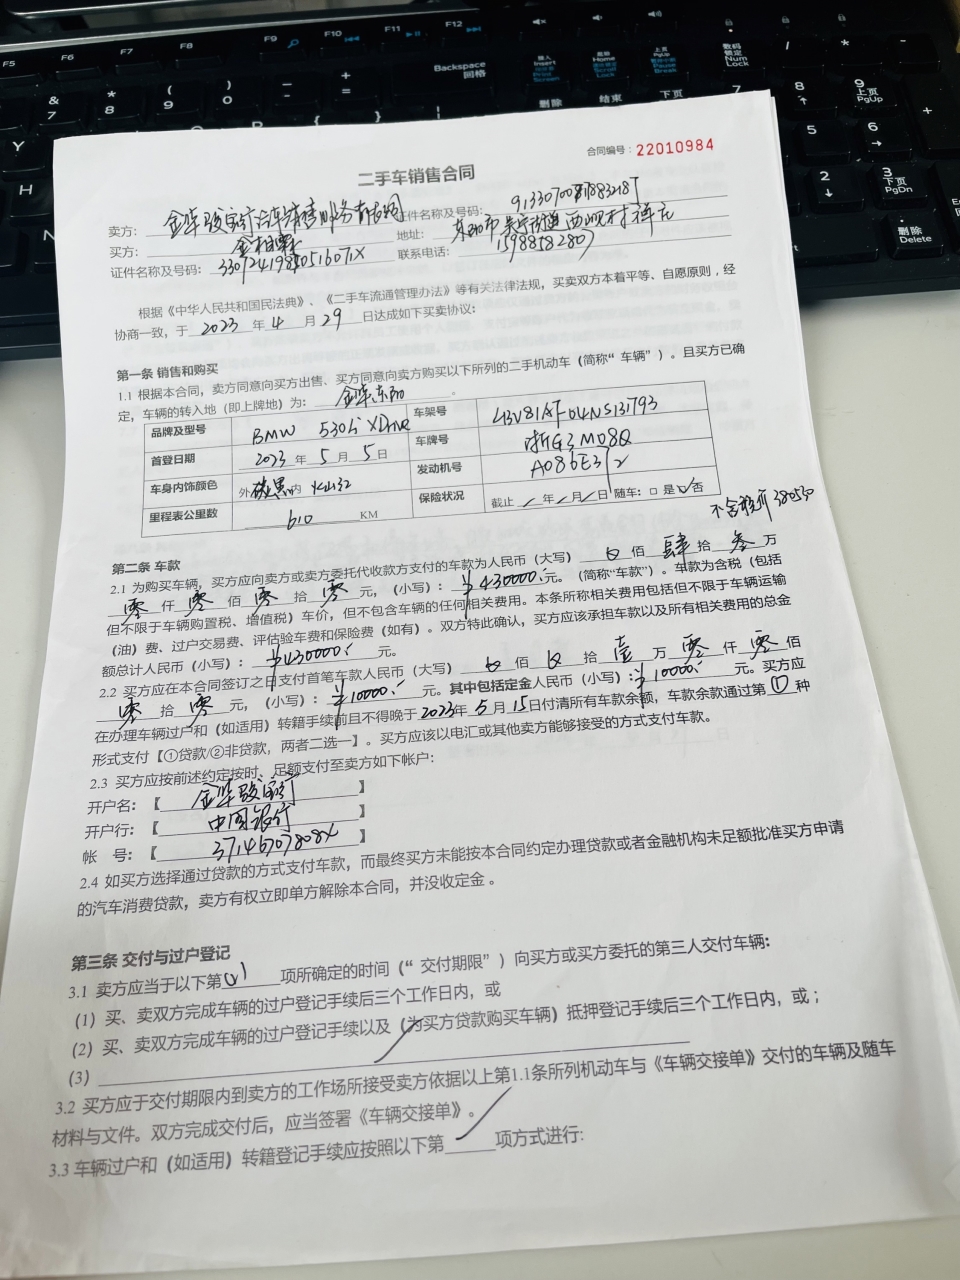 F5 F6 F7 F8 F9 F10 F11 F12
Backspace 回格
Insert Home
Print Screen Scroll Lock Pause Break
删除 结束 下页
数码锁定 Num Lock / * -
& 7 * 8 ( 9 ) 0 _ - + =
{ [ } ]
Y H N
7 8 ↑ 9 上页 PgUp +
5 6 →
2 ↓ 3 下页 PgDn
删除 Delete
合同编号：22010984
二手车销售合同
卖方： 金华骏宝行汽车销售服务有限公司 证件名称及号码： 91330700818832187
买方： 地址： 东阳市吴宁街道西岘村
证件名称及号码： 33072419850516071X 联系电话： 15988582807
根据《中华人民共和国民法典》、《二手车流通管理办法》等有关法律法规，买卖双方本着平等、自愿原则，经
协商一致，于 2023 年 4 月 29 日达成如下买卖协议：
第一条 销售和购买
1.1 根据本合同，卖方同意向买方出售、买方同意向卖方购买以下所列的二手机动车（简称“ 车辆” ）。且买方已确
定，车辆的转入地（即上牌地）为： 金华东阳 。
品牌及型号 BMW 530Li XDrive 车架号 LBV81AF04NS131793
首登日期 2023 年 5 月 5 日 车牌号 浙G3M08Q
车身内饰颜色 外 碳黑 内 发动机号 A086E312
里程表公里数 610 KM 保险状况 截止 / 年 / 月 / 日 随车：□ 是 ☑ 否
不含税价 380530
第二条 车款
2.1 为购买车辆，买方应向卖方或卖方委托代收款方支付的车款为人民币（大写） 佰 肆 拾 叁 万
零 仟 零 佰 零 拾 零 元，（小写）： ￥430000.- 元。（简称“车款”）。车款为含税（包括
但不限于车辆购置税、增值税）车价，但不包含车辆的任何相关费用。本条所称相关费用包括但不限于车辆运输
（油）费、过户交易费、评估验车费和保险费（如有）。双方特此确认，买方应该承担车款以及所有相关费用的总金
额总计人民币（小写）： ￥430000.- 元。
2.2 买方应在本合同签订之日支付首笔车款人民币（大写） 佰 拾 壹 万 零 仟 零 佰
零 拾 零 元，（小写）： ￥10000.- 元。其中包括定金人民币（小写）：￥10000.- 元。买方应
在办理车辆过户和（如适用）转籍手续前且不得晚于 2023年 5 月 15 日付清所有车款余额，车款余款通过第 ① 种
形式支付【①贷款/②非贷款，两者二选一】。买方应该以电汇或其他卖方能够接受的方式支付车款。
2.3 买方应按前述约定按时、足额支付至卖方如下帐户：
开户名：【 金华骏宝行 】
开户行：【 中国银行 】
帐 号：【 】
2.4 如买方选择通过贷款的方式支付车款，而最终买方未能按本合同约定办理贷款或者金融机构未足额批准买方申请
的汽车消费贷款，卖方有权立即单方解除本合同，并没收定金 。
第三条 交付与过户登记
3.1 卖方应当于以下第 (1) 项所确定的时间（“ 交付期限”）向买方或买方委托的第三人交付车辆：
（1）买、卖双方完成车辆的过户登记手续后三个工作日内，或
（2）买、卖双方完成车辆的过户登记手续以及（为买方贷款购买车辆）抵押登记手续后三个工作日内，或；
（3）
3.2 买方应于交付期限内到卖方的工作场所接受卖方依据以上第1.1条所列机动车与《车辆交接单》交付的车辆及随车
材料与文件。双方完成交付后，应当签署《车辆交接单》。
3.3 车辆过户和（如适用）转籍登记手续应按照以下第 项方式进行：